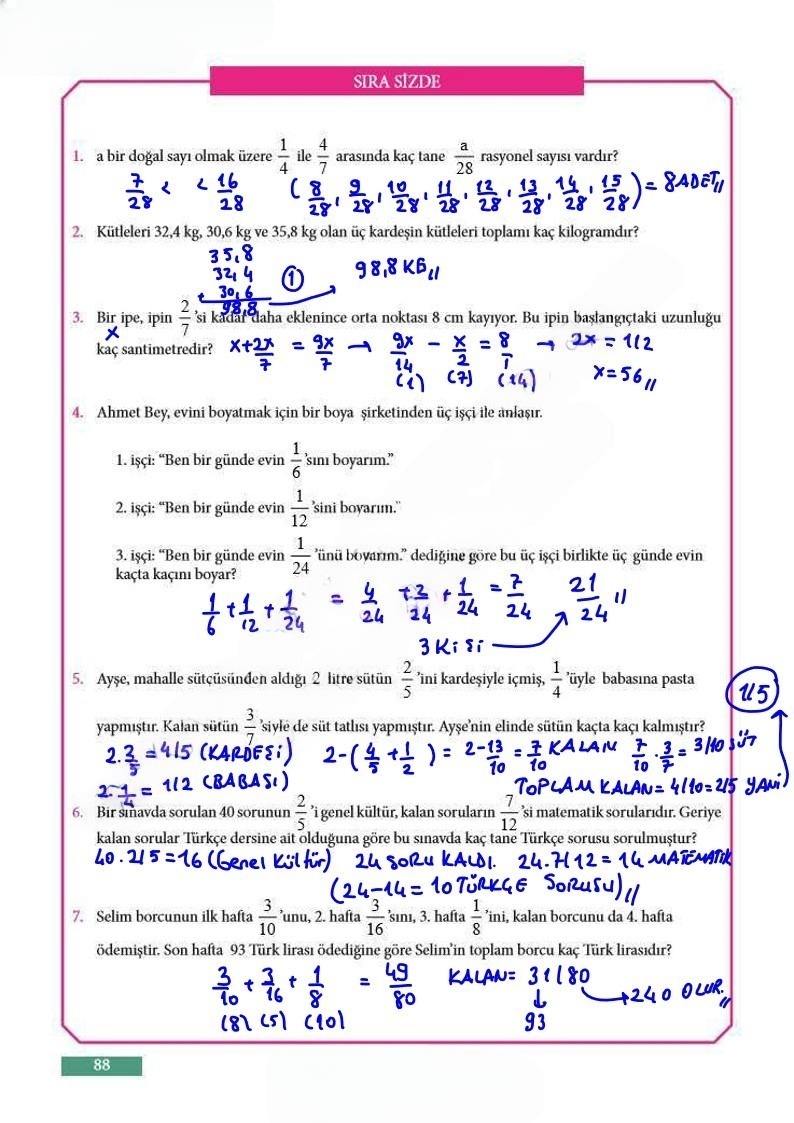 SIRA SİZDE
1. a bir doğal sayı olmak üzere 1/4 ile 4/7 arasında kaç tane a/28 rasyonel sayısı vardır?
7/28 < < 16/28 (8/28, 9/28, 10/28, 11/28, 12/28, 13/28, 14/28, 15/28) = 8 ADET //
2. Kütleleri 32,4 kg, 30,6 kg ve 35,8 kg olan üç kardeşin kütleleri toplamı kaç kilogramdır?
35,8
32,4
+ 30,6
98,8
① 98,8 KG //
3. Bir ipe, ipin 2/7 'si kadar daha eklenince orta noktası 8 cm kayıyor. Bu ipin başlangıçtaki uzunluğu
x
kaç santimetredir? x+2x/7 = 9x/7 → 9x/14 - x/2 = 8/1 → 2x = 112
(1) (7) (14) x=56 //
4. Ahmet Bey, evini boyatmak için bir boya şirketinden üç işçi ile anlaşır.
1. işçi: “Ben bir günde evin 1/6 'sını boyarım.”
2. işçi: “Ben bir günde evin 1/12 'sini boyarım.”
3. işçi: “Ben bir günde evin 1/24 'ünü boyarım.” dediğine göre bu üç işçi birlikte üç günde evin
kaçta kaçını boyar?
1/6 + 1/12 + 1/24 = 4/24 + 2/24 + 1/24 = 7/24 21/24 //
3 KİŞİ
5. Ayşe, mahalle sütçüsünden aldığı 2 litre sütün 2/5 'ini kardeşiyle içmiş, 1/4 'üyle babasına pasta
1/5
yapmıştır. Kalan sütün 3/7 'siyle de süt tatlısı yapmıştır. Ayşe'nin elinde sütün kaçta kaçı kalmıştır?
2.2/5 = 4/5 (KARDEŞİ) 2-(4/5 + 1/2) = 2-13/10 = 7/10 KALAN 7/10 . 3/7 = 3/10 SÜT
2.1/4 = 1/2 (BABASI) TOPLAM KALAN = 4/10 = 2/5 YANİ
6. Bir sınavda sorulan 40 sorunun 2/5 'i genel kültür, kalan soruların 7/12 'si matematik sorularıdır. Geriye
kalan sorular Türkçe dersine ait olduğuna göre bu sınavda kaç tane Türkçe sorusu sorulmuştur?
40.2/5=16 (Genel Kültür) 24 SORU KALDI. 24.7/12 = 14 MATEMATİK
(24-14=10 TÜRKÇE SORUSU) //
7. Selim borcunun ilk hafta 3/10 'unu, 2. hafta 3/16 'sını, 3. hafta 1/8 'ini, kalan borcunu da 4. hafta
ödemiştir. Son hafta 93 Türk lirası ödediğine göre Selim'in toplam borcu kaç Türk lirasıdır?
3/10 + 3/16 + 1/8 = 49/80 KALAN = 31/80 → 240 OLUR. //
(8) (5) (10) 93
88